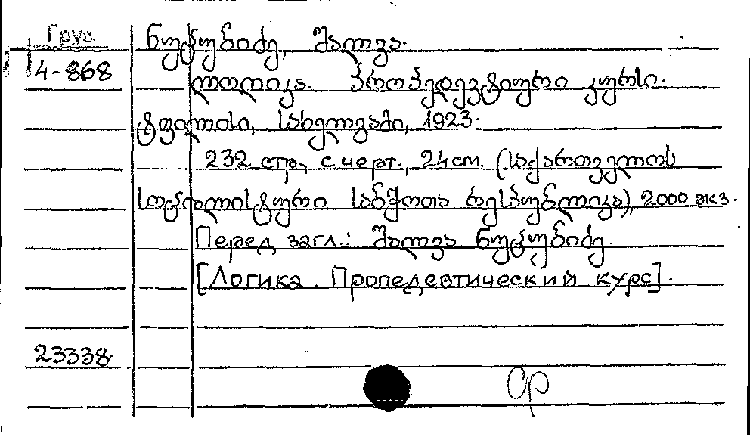 Груз.
ნუცუბიძე, შალვა.
4-868
ლოღიკა. პროპედევტიური კურსი.
ტფილისი, სახელგამი, 1923.
232 стр., с черт., 24 см. (საქართველოს
სოციალისტური საბჭოთა რესპუბლიკა), 2000 экз.
Перед загл.: შალვა ნუცუბიძე
[Логика. Пропедевтический курс].
23338
Ср